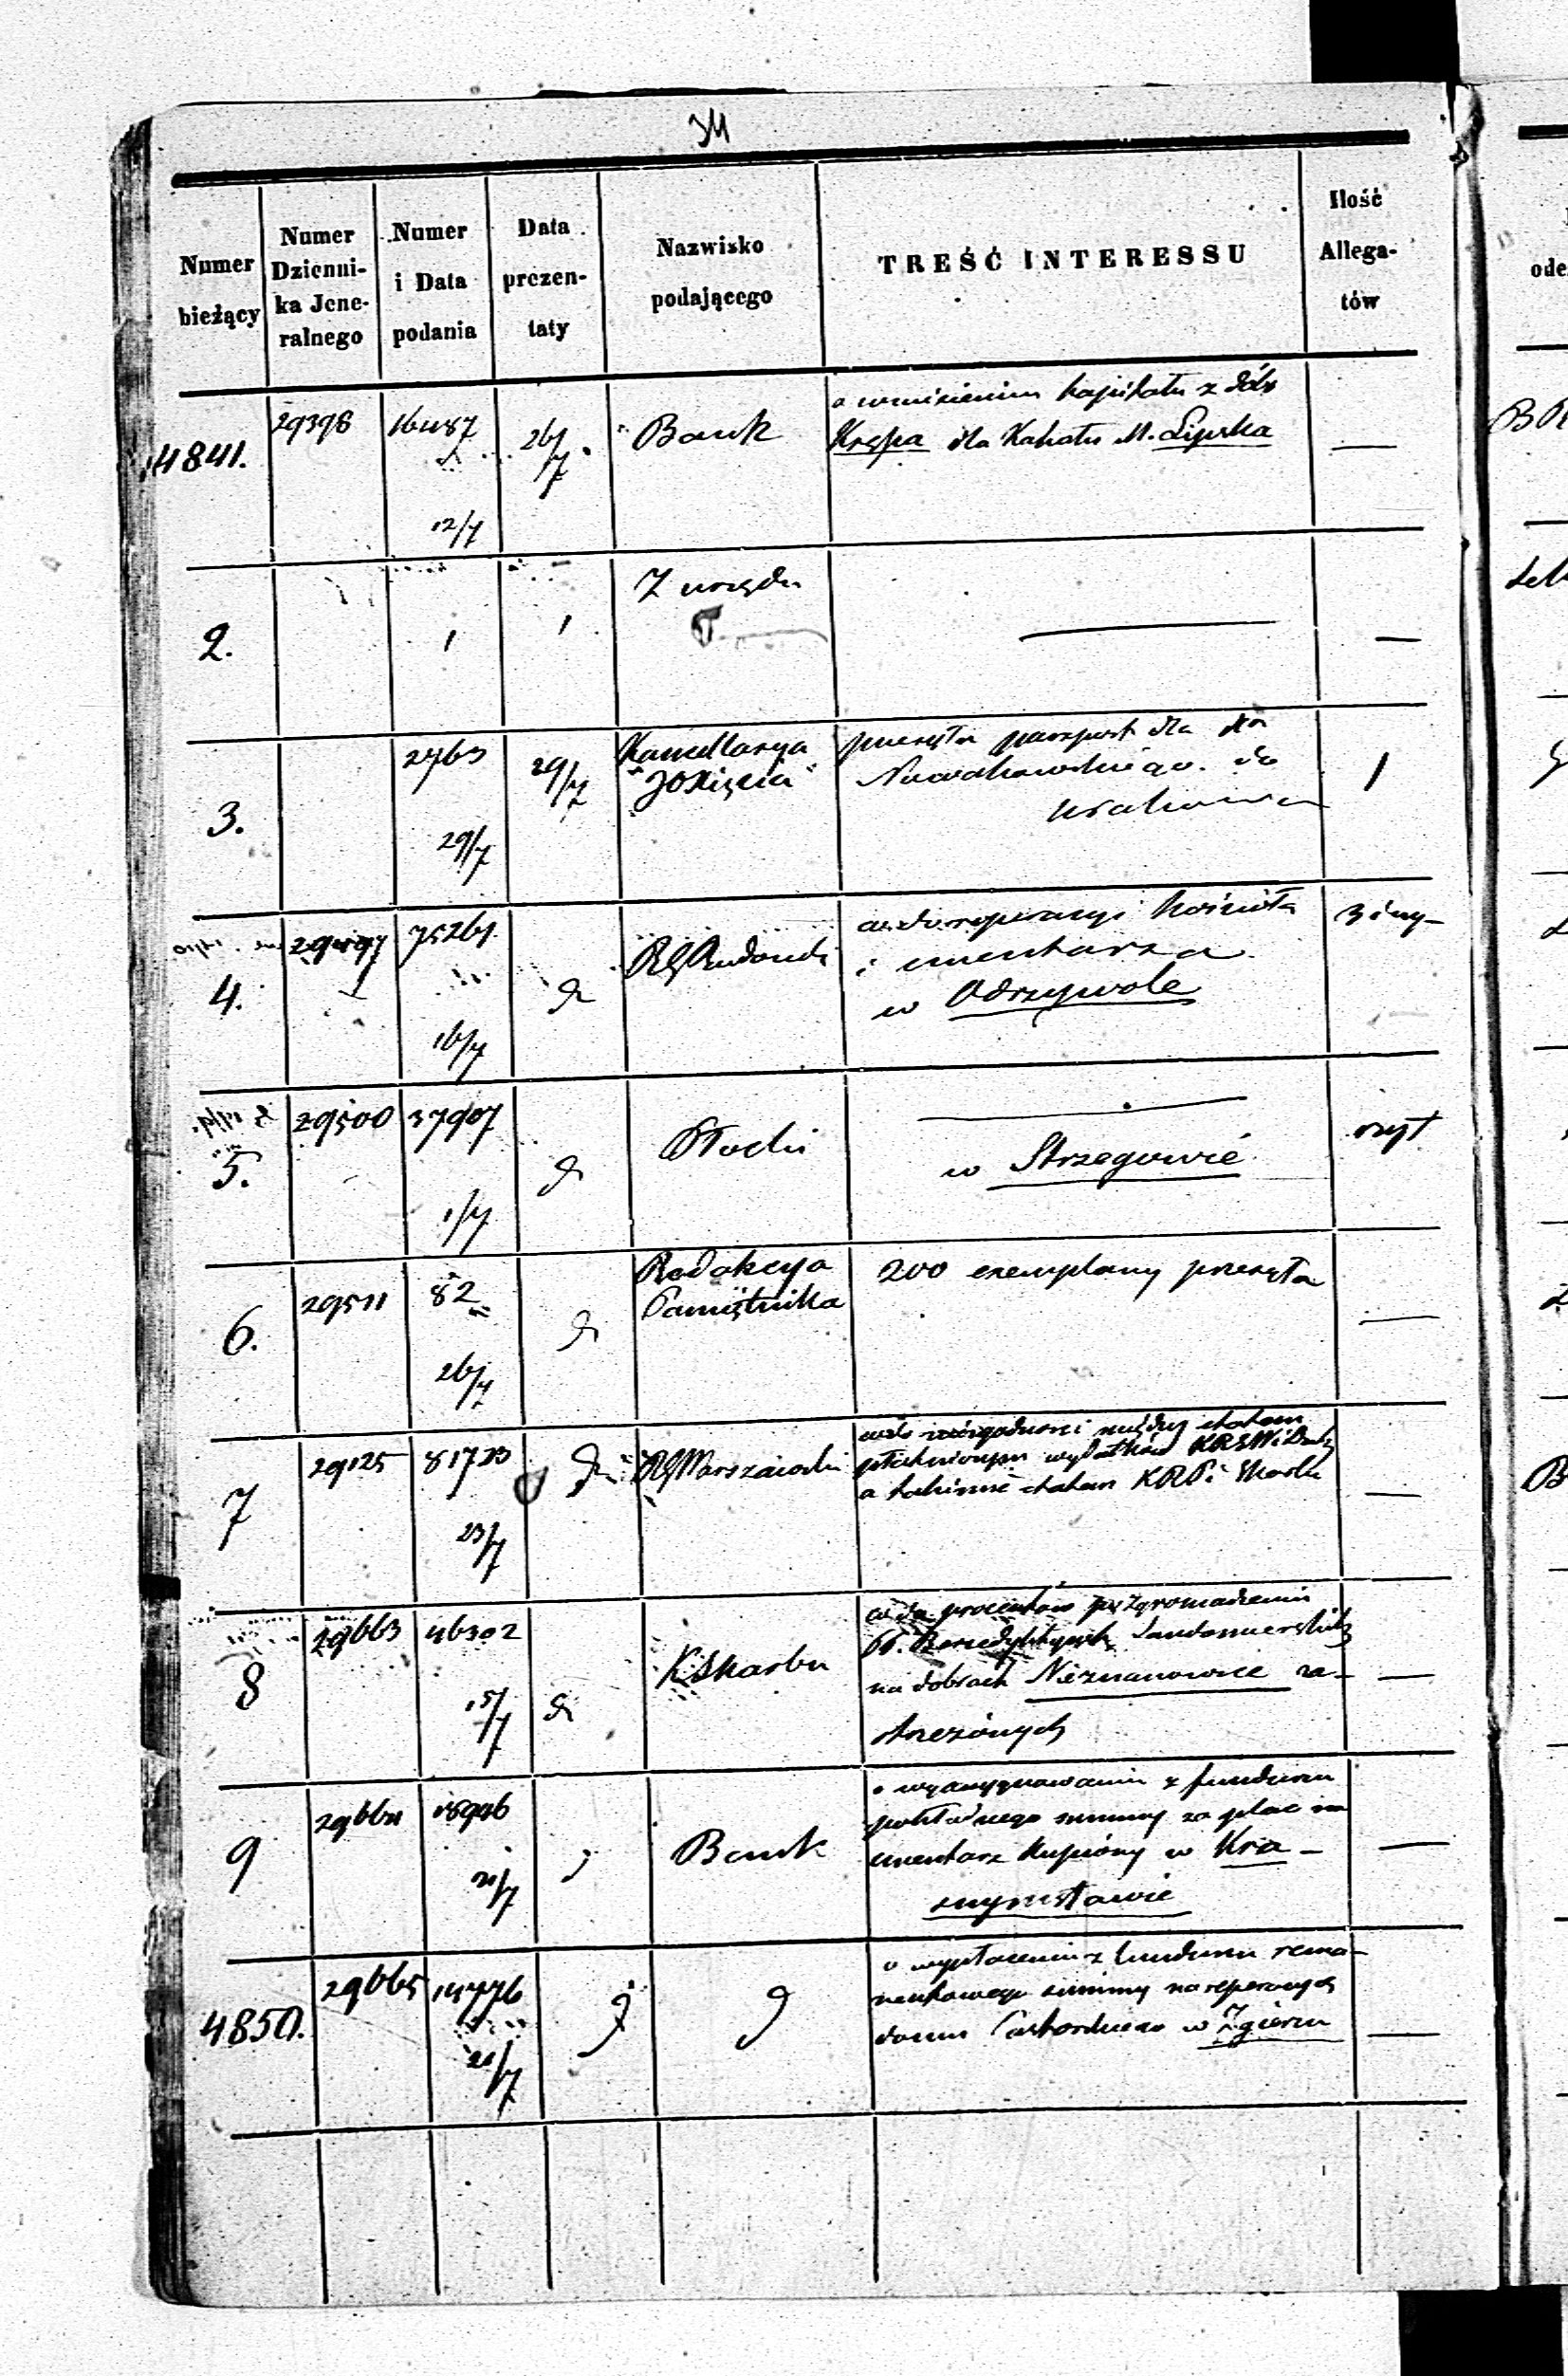 34
Numer
bieżący
Numer
Dzienni-
ka Jene-
ralnego
Numer
i Data
podania
Data
prezen-
taty
Nazwisko
podającego
TREŚĆ INTERESSU
Ilość
Allega-
tów
4841.
29398
16487
12/7
26/7
Bank
o wniesieniu kapitału z dóbr
Krępa dla Kahału M. Lipska
—
2.
Z urzędu
—
3.
2763
29/7
29/7
Kancellarya
JOXięcia
przesyła paszport dla
Nowakowskiego do
Krakowa
1
4.
29497
75261
16/7
RG Radomski
co do reperacyi kościoła
i cmentarza
w Odrzywole
3 i
5.
29500
37907
1/7
Płocki
w Strzegowie
6.
29511
82
26/7
Redakcya
Pamiętnika
200 exemplarzy przesyła
—
7
29125
81723
23/7
RG Warszawski
co do niezgodności między etatem
wydatków KRSW i D
a takimże etatem KRP i Skarbu
—
8
29663
46302
15/7
K Skarbu
co do procentów zgromadzenia
PP. Benedyktynek Sandomierskich
na dobrach Nieznanowice za-
strzeżonych
—
9
29664
18946
21/7
Bank
o wyasygnowanie z funduszu
pokładnego summy za plac na
cmentarz kupiony w Kra-
snymstawie
—
4850.
29665
14776
21/7
o wypłacenie z funduszu rema-
nentowego summy na reperacyą
domu Pastorskiego w Zgierzu
—